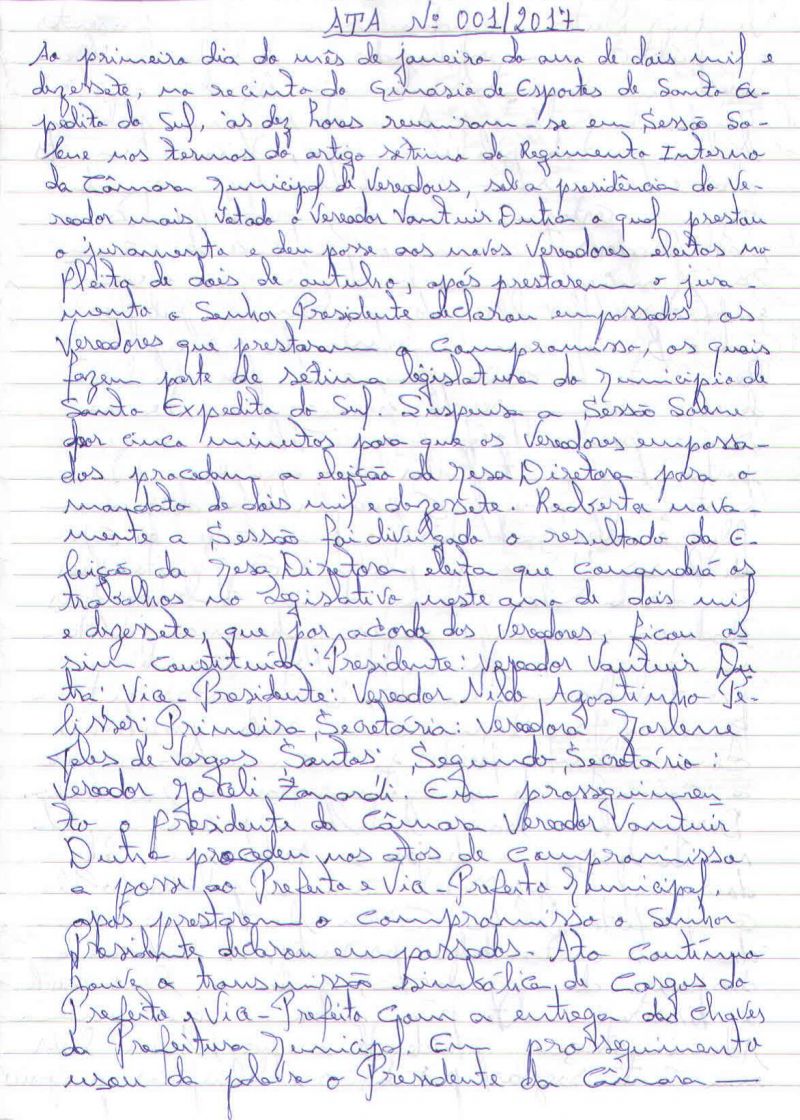 ATA Nº 001/2017
Ao primeiro dia do mês de janeiro do ano de dois mil e
dezessete, no recinto do Ginásio de Esportes de Santo Ex-
pedito do Sul, às dez horas reuniram-se em Sessão So-
lene nos termos do artigo sétimo do Regimento Interno
da Câmara Municipal de Vereadores, sob a presidência do Ve-
reador mais votado o Vereador Vantuir Dutra o qual prestou
o juramento e deu posse aos novos Vereadores eleitos no
Pleito de dois de outubro, após prestarem o jura-
mento o Senhor Presidente declarou empossados os
Vereadores que prestaram o compromisso, os quais
fazem parte de sétima legislatura do Município de
Santo Expedito do Sul. Suspensa a Sessão Solene
por cinco minutos para que os Vereadores empossa-
dos procedam a eleição da Mesa Diretora para o
mandato de dois mil e dezessete. Reaberta nova-
mente a Sessão foi divulgado o resultado da E-
leição da Mesa Diretora eleita que comandará os
trabalhos no Legislativo neste ano de dois mil
e dezessete, que por acordo dos Vereadores, ficou as
sim constituída: Presidente: Vereador Vantuir Du
tra: Vice-Presidente: Vereador Nildo Agostinho Pe-
lisser: Primeira Secretária: Vereadora Marlene
Teles de Vargas Santos: Segundo Secretário:
Vereador Natali Zanardi. Em prosseguimen
to o Presidente da Câmara Vereador Vantuir
Dutra procedeu nos atos de compromisso
a posse ao Prefeito e Vice-Prefeito Municipal,
após prestarem o compromisso o Senhor
Presidente declarou empossados. Ato Contínuo
houve a transmissão simbólica de Cargos do
Prefeito e Vice-Prefeito com a entrega das chaves
da Prefeitura Municipal. Em prosseguimento
usou da palavra o Presidente da Câmara —